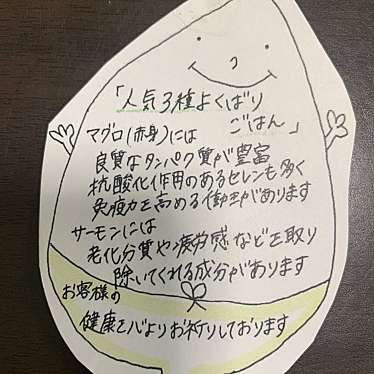 「人気3種よくばり
ごはん」
マグロ(赤身)には
良質なタンパク質が豊富
抗酸化作用のあるセレンも多く
免疫力を高める働きがあります
サーモンには
老化分質や疲労感などを取り
除いてくれる成分があります
お客様の
健康を心よりお祈りしております